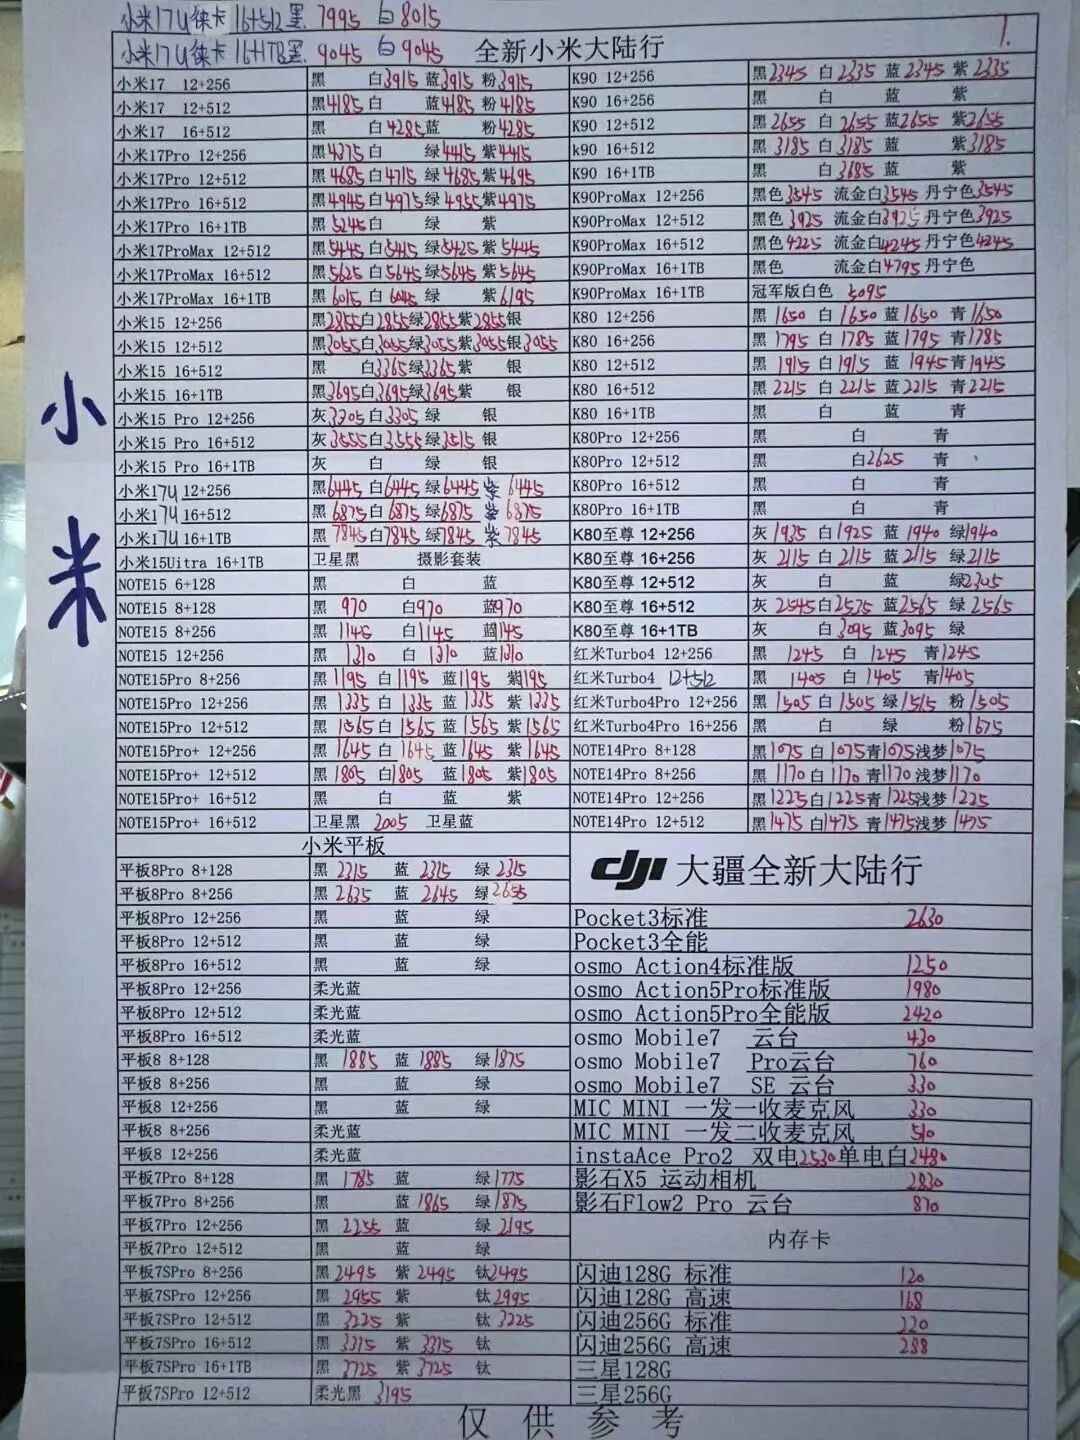 小米17U徕卡16+512黑 7995 白8015
小米17U徕卡16+1TB黑 9045 白9045
1.
全新小米大陆行
小米
小米17 12+256 黑 白3915 蓝3915 粉3915
小米17 12+512 黑4185 白 蓝4185 粉4185
小米17 16+512 黑 白4285 蓝 粉4285
小米17Pro 12+256 黑4375 白 绿4415 紫4415
小米17Pro 12+512 黑4685 白4715 绿4685 紫4695
小米17Pro 16+512 黑4945 白4975 绿4955 紫4975
小米17Pro 16+1TB 黑5245 白 绿 紫
小米17ProMax 12+512 黑5445 白5415 绿5425 紫5445
小米17ProMax 16+512 黑5625 白5645 绿5645 紫5645
小米17ProMax 16+1TB 黑6015 白6045 绿 紫6195
小米15 12+256 黑2855 白2855 绿2855 紫2855 银
小米15 12+512 黑3055 白3055 绿3055 紫3055 银3055
小米15 16+512 黑 白3365 绿3365 紫 银
小米15 16+1TB 黑3695 白3695 绿3695 紫 银
小米15 Pro 12+256 灰3305 白3305 绿 银
小米15 Pro 16+512 灰3555 白3555 绿3515 银
小米15 Pro 16+1TB 灰 白 绿 银
小米17U 12+256 黑6445 白6445 绿6445 紫6445
小米17U 16+512 黑6875 白6875 绿6875 紫6875
小米17U 16+1TB 黑7845 白7845 绿7845 紫7845
小米15Uitra 16+1TB 卫星黑 摄影套装
NOTE15 6+128 黑 白 蓝
NOTE15 8+128 黑 970 白970 蓝970
NOTE15 8+256 黑 1145 白1145 蓝1145
NOTE15 12+256 黑 1310 白 1310 蓝1310
NOTE15Pro 8+256 黑 1195 白 1195 蓝1195 紫1195
NOTE15Pro 12+256 黑 1335 白 1335 蓝 1335 紫 1335
NOTE15Pro 12+512 黑 1565 白 1565 蓝 1565 紫1565
NOTE15Pro+ 12+256 黑1645 白 1645 蓝1645 紫1645
NOTE15Pro+ 12+512 黑1805 白1805 蓝1805 紫1805
NOTE15Pro+ 16+512 黑 白 蓝 紫
NOTE15Pro+ 16+512 卫星黑 2005 卫星蓝
小米平板
平板8Pro 8+128 黑 2315 蓝 2315 绿 2315
平板8Pro 8+256 黑 2635 蓝 2645 绿2655
平板8Pro 12+256 黑 蓝 绿
平板8Pro 12+512 黑 蓝 绿
平板8Pro 16+512 黑 蓝 绿
平板8Pro 12+256 柔光蓝
平板8Pro 12+512 柔光蓝
平板8Pro 16+512 柔光蓝
平板8 8+128 黑 1885 蓝 1885 绿1875
平板8 8+256 黑 蓝 绿
平板8 12+256 黑 蓝 绿
平板8 8+256 柔光蓝
平板8 12+256 柔光蓝
平板7Pro 8+128 黑 1785 蓝 绿1775
平板7Pro 8+256 黑 蓝 1865 绿1875
平板7Pro 12+256 黑 2255 蓝 绿 2195
平板7Pro 12+512 黑 蓝 绿
平板7SPro 8+256 黑 2495 紫 2495 钛2495
平板7SPro 12+256 黑 2955 紫 钛2995
平板7SPro 12+512 黑 3225 紫 钛3225
平板7SPro 16+512 黑 3315 紫 3315 钛
平板7SPro 16+1TB 黑 3725 紫 3725 钛
平板7SPro 12+512 柔光黑 3195
K90 12+256 黑2345 白 2335 蓝 2345 紫 2335
K90 16+256 黑 白 蓝 紫
K90 12+512 黑2655 白 2655 蓝2655 紫2655
k90 16+512 黑 3185 白3185 蓝 紫3185
K90 16+1TB 黑 白3685 蓝 紫
K90ProMax 12+256 黑色3545 流金白3545 丹宁色3545
K90ProMax 12+512 黑色3925 流金白3925 丹宁色3925
K90ProMax 16+512 黑色4225 流金白4245 丹宁色4245
K90ProMax 16+1TB 黑色 流金白4795 丹宁色
K90ProMax 16+1TB 冠军版白色 5095
K80 12+256 黑 1650 白 1650 蓝1650 青1650
K80 16+256 黑 1795 白 1785 蓝1795 青1785
K80 12+512 黑 1915 白1915 蓝 1945 青1945
K80 16+512 黑 2215 白 2215 蓝2215 青2215
K80 16+1TB 黑 白 蓝 青
K80Pro 12+256 黑 白 青
K80Pro 12+512 黑 白2625 青
K80Pro 16+512 黑 白 青
K80Pro 16+1TB 黑 白 青
K80至尊 12+256 灰 1935 白 1925 蓝 1940 绿1940
K80至尊 16+256 灰 2115 白 2115 蓝 2115 绿2115
K80至尊 12+512 灰 白 蓝 绿2305
K80至尊 16+512 灰 2545 白2535 蓝2565 绿 2565
K80至尊 16+1TB 灰 白3095 蓝3095 绿
红米Turbo4 12+256 黑 1245 白 1245 青1245
红米Turbo4 12+512 黑 1405 白 1405 青1405
红米Turbo4Pro 12+256 黑 1505 白1505 绿1515 粉1505
红米Turbo4Pro 16+256 黑 白 绿 粉1675
NOTE14Pro 8+128 黑1075 白 1075 青1075 浅梦1075
NOTE14Pro 8+256 黑 1170 白 1170 青1170 浅梦1170
NOTE14Pro 12+256 黑1225 白1225 青1225 浅梦1225
NOTE14Pro 12+512 黑1475 白1475 青1475 浅梦1475
dji 大疆全新大陆行
Pocket3标准 2630
Pocket3全能
osmo Action4标准版 1250
osmo Action5Pro标准版 1980
osmo Action5Pro全能版 2420
osmo Mobile7 云台 430
osmo Mobile7 Pro云台 760
osmo Mobile7 SE 云台 330
MIC MINI 一发一收麦克风 330
MIC MINI 一发二收麦克风 510
instaAce Pro2 双电2530单电白2480
影石X5 运动相机 2830
影石Flow2 Pro 云台 870
内存卡
闪迪128G 标准 120
闪迪128G 高速 168
闪迪256G 标准 220
闪迪256G 高速 288
三星128G
三星256G
仅供参考